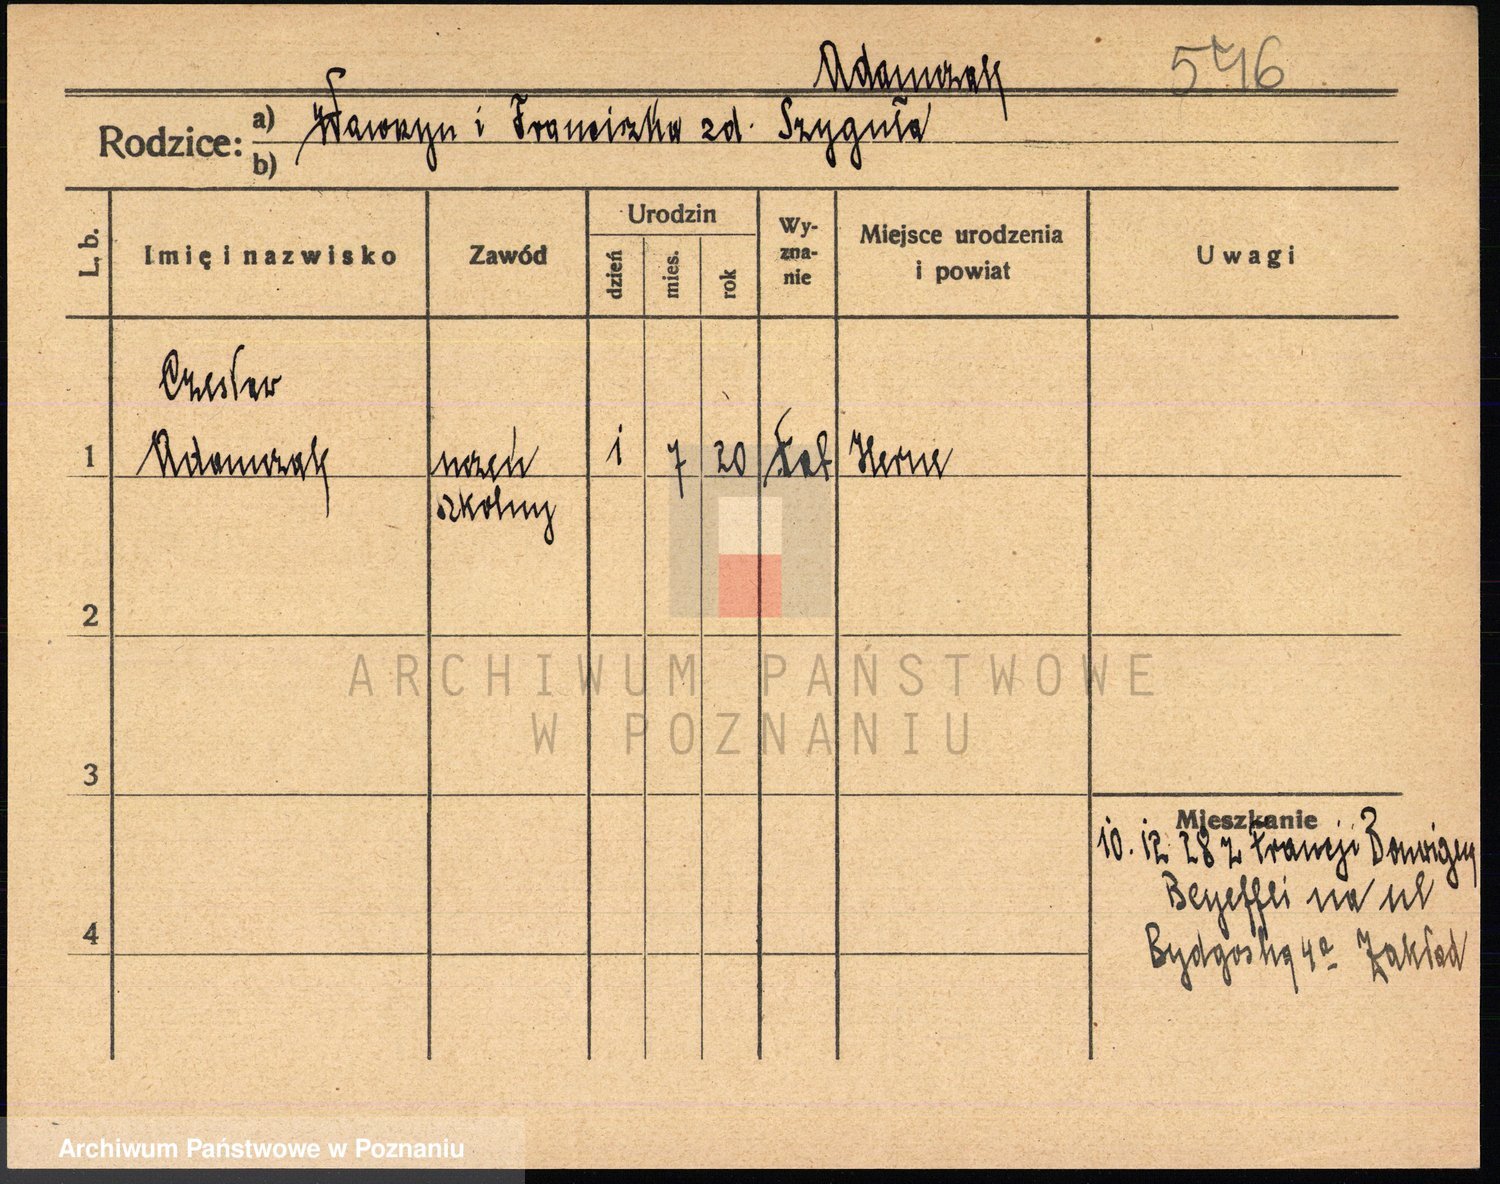 Adamczak
576
Rodzice: a) Wawrzyn i Franciszka zd. Szyguła
b)
L. b.
Imię i nazwisko
Zawód
Urodzin
dzień
mies.
rok
Wy-
zna-
nie
Miejsce urodzenia
i powiat
Uwagi
Czesław
1 Adamczak uczeń 1 7 20 kat Herne
szkolny
2
3
4
Mieszkanie
10. 12 28 z Francji
na ul
Bydgoską 4a Zakład
ARCHIWUM PAŃSTWOWE
W POZNANIU
Archiwum Państwowe w Poznaniu